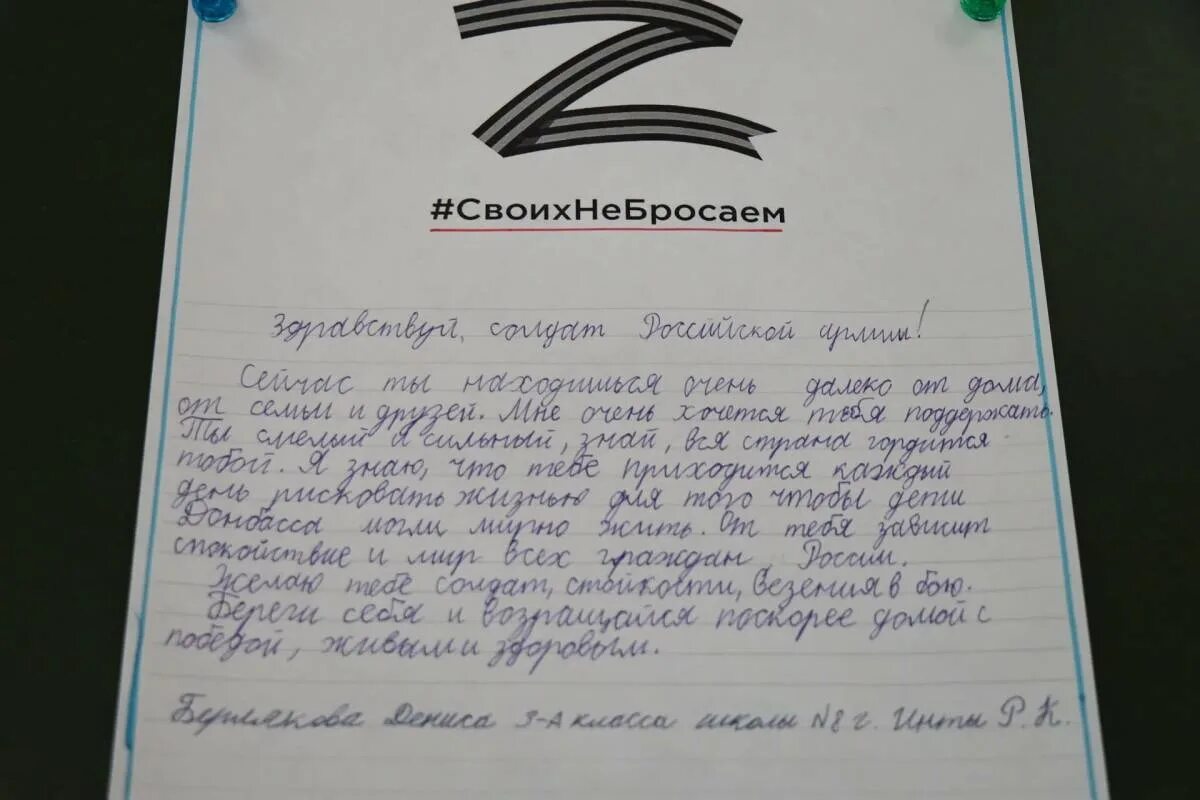 #СвоихНеБросаем
Здравствуй, солдат Российской армии!
Сейчас ты находишься очень далеко от дома,
от семьи и друзей. Мне очень хочется тебя поддержать.
Ты смелый и сильный, знай, вся страна гордится
тобой. Я знаю, что тебе приходится каждый
день рисковать жизнью для того чтобы дети
Донбасса могли мирно жить. От тебя зависит
спокойствие и мир всех граждан России.
Желаю тебе солдат, стойкости, везения в бою.
Береги себя и возращайся поскорее домой с
победой, живым и здоровым.
Дениса 3-А класса школы №8 г. Инты Р. К.